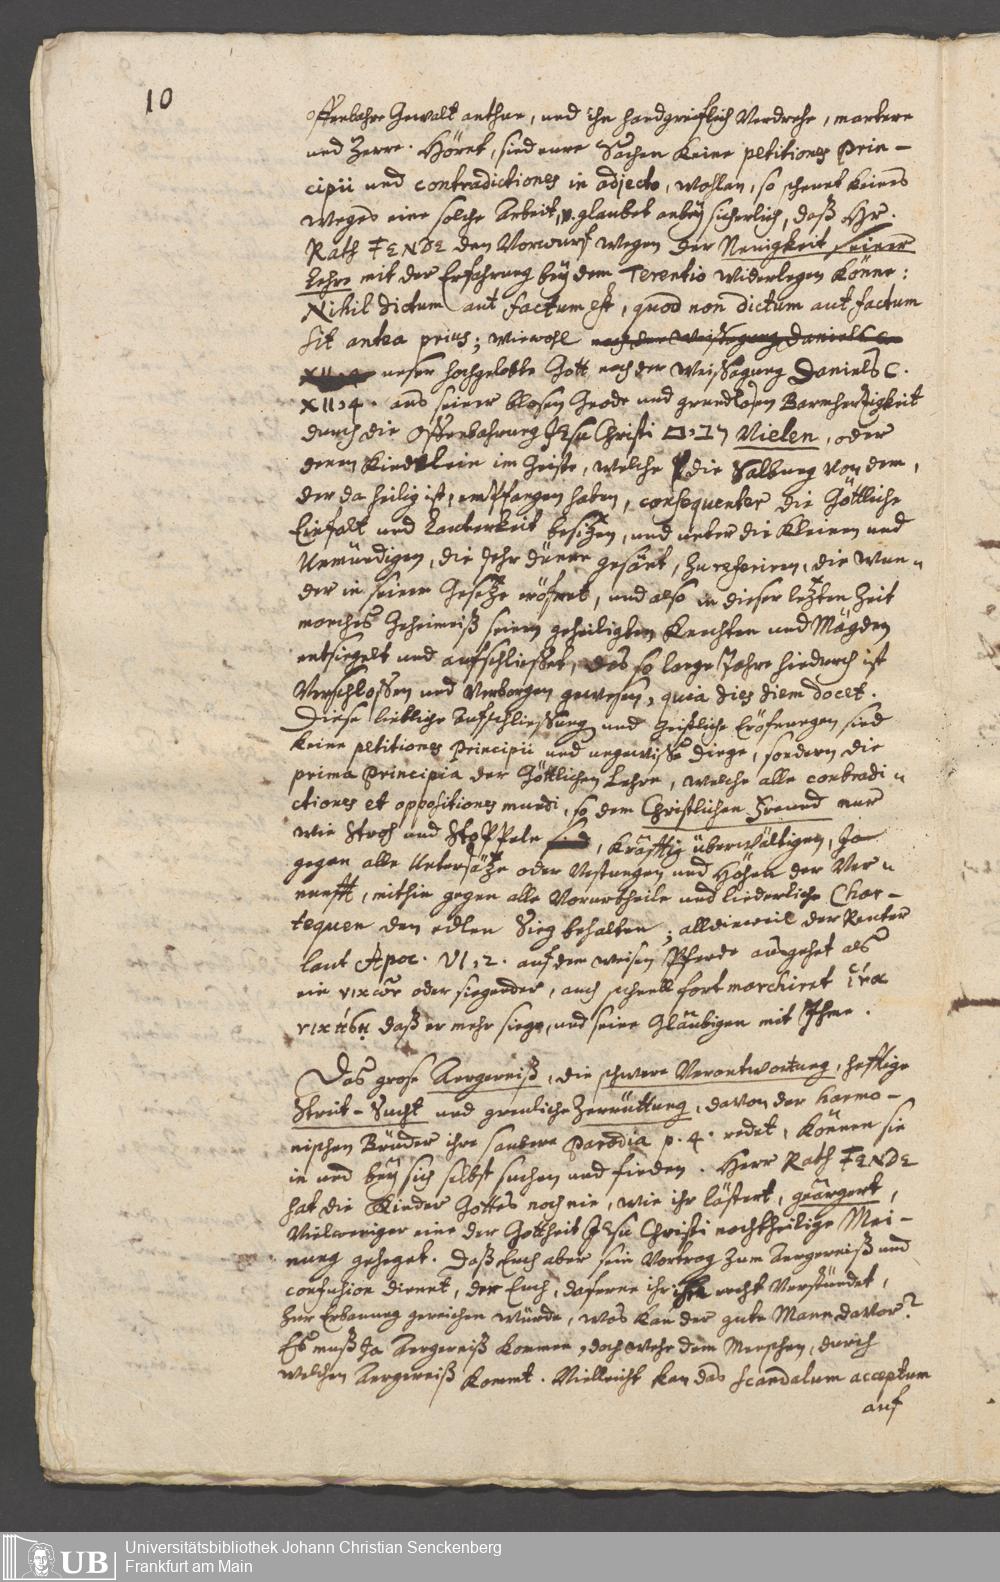 10
offenbahre Gewalt anthue, und ihn handgreiflich Verdrehe, martere
und Zerre. Höret, sind eure Sachen keine petitiones Prin-
cipii und contradictiones in adjecto, wohlan, so scheuet keines
Weges eine solche Arbeit, u. glaubet anbey sicherlich, daß Hr.
Rath FENDE den Vorwurf wegen der Neuigkeit seiner
Lehre mit der Erfahrung bey dem Terentio widerlegen könne:
Nihil dictum aut factum est, quod non dictum aut factum
sit antea prius; wiewohl nach der Weissagung Daniels C.
XII, 4 unser hochgelobte Gott nach der Weissagung Daniels C.
XII, 4. aus seiner blosen Gnade und grundlosen Barmherzigkeit
durch die Offenbahrung JEsu Christi Vielen, oder
denen Kindlein im Geiste, welche die Salbung von dem,
der da heilig ist, empfangen haben, consequenter die Göttliche
Einfalt und Lauterkeit besitzen, und unter die Kleinen und
Unwürdigen, die sehr dünne gesäet, zu referiren, die Wun-
der in seinem Gesetze eröfnet, und also in dieser letzten Zeit
manches Geheimniß seinen geheiligten Knechten und Mägden
entsiegelt und aufschliesset, das so lange Jahre hiedurch ist
Verschlossen und Verborgen gewesen, quia dies diem docet.
Diese liebliche Aufschliessung und Geistliche Eröfnungen sind
keine petitiones Principii und ungewisse Dinge, sondern die
prima Principia der Göttlichen Lehre, welche alle contradi-
ctiones et oppositiones mundi, so dem Christlichen Freund nur
wie Stroh und Stoppeln sind, kräfftig überwältigen, Ja
gegen alle Untersätze oder Vestungen und Höhen der Ver-
nunfft, mithin gegen alle Vorurtheile und liederliche Char-
tequen den edlen Sieg behalten; alldieweil der Reuter
laut Apoc. VI, 2. auf dem weisen Pferde ausgehet als
ein νικῶν oder siegender, auch schnell fort marchiret ἵνα
νικήσῃ daß er mehr siege, und seine Gläubigen mit Ihme.
Das grose Aergerniß, die schwere Verantwortung, hefftige
Streit-Sucht und greuliche Zerrüttung, davon der harmo-
nischen Brüder ihre saubere Parodia p. 4. redet, können sie
in und bey sich selbst suchen und finden. Herr Rath FENDE
hat die Kinder Gottes noch nie, wie ihr lästert, geärgert,
Vielweniger eine der Gottheit JEsu Christi nachtheilige Mei-
nung geheget. Daß Euch aber sein Vortrag zum Aergerniß und
confusion dienet, der Euch, daferne ihr ihn recht Verstündet,
zur Erbauung gereichen würde, was kan der gute Mann davor?
Es muß Ja Aergerniß kommen, doch wehe dem Menschen, durch
welchen Aergerniß kommt. Vielleicht kan das scandalum acceptum
auf
UB
Universitätsbibliothek Johann Christian Senckenberg
Frankfurt am Main